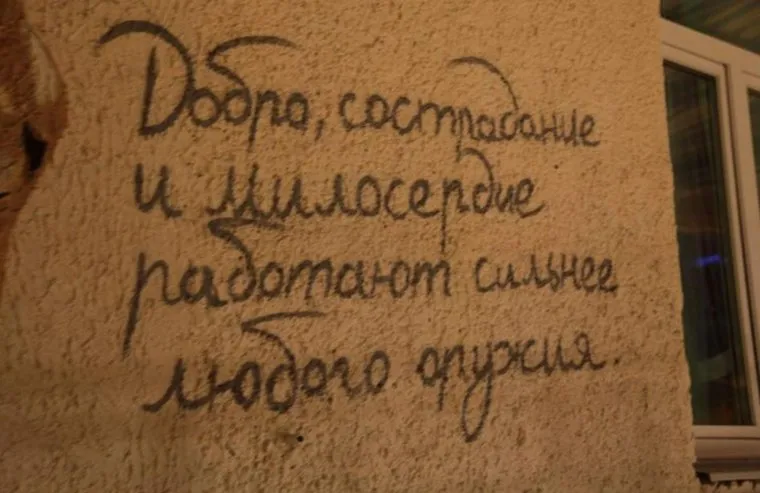 Добро, сострадание
и милосердие
работают сильнее
любого оружия.